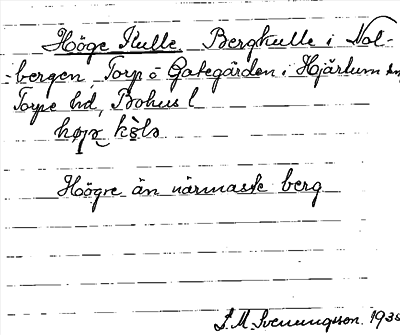 Höge Kulle Bergkulle i Val-
-bergen, Torp o Gategården i Hjärtum sn
Torpe hd, Bohus l
Högre än närmaste berg
S. M. Svenungsson. 1935